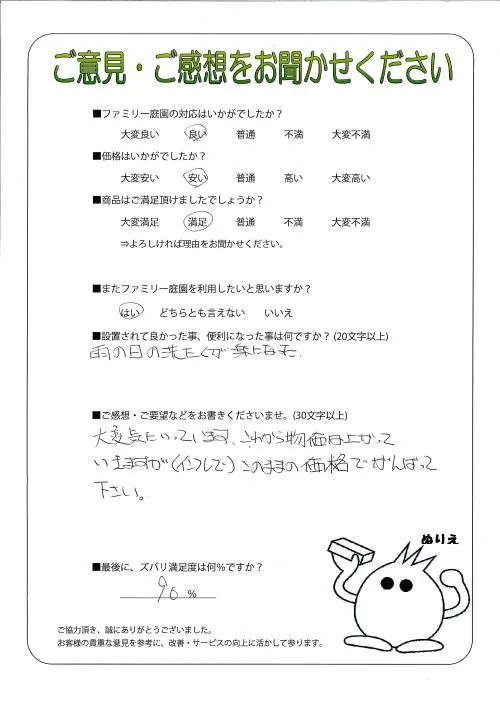 ご意見・ご感想をお聞かせください
■ファミリー庭園の対応はいかがでしたか？
大変良い 良い 普通 不満 大変不満
■価格はいかがでしたか？
大変安い 安い 普通 高い 大変高い
■商品はご満足頂けましたでしょうか？
大変満足 満足 普通 不満 大変不満
⇒よろしければ理由をお聞かせください。
■またファミリー庭園を利用したいと思いますか？
はい どちらとも言えない いいえ
■設置されて良かった事、便利になった事は何ですか？(20文字以上)
雨の日の洗たくが楽になった.
■ご感想・ご要望などをお書きくださいませ。(30文字以上)
大変気にいっています、これから物価は上がって
いきますが(インフレで)このままの価格でがんばって
下さい。
ぬりえ
■最後に、ズバリ満足度は何％ですか？
90 %
ご協力頂き、誠にありがとうございました。
お客様の貴重な意見を参考に、改善・サービスの向上に活かして参ります。